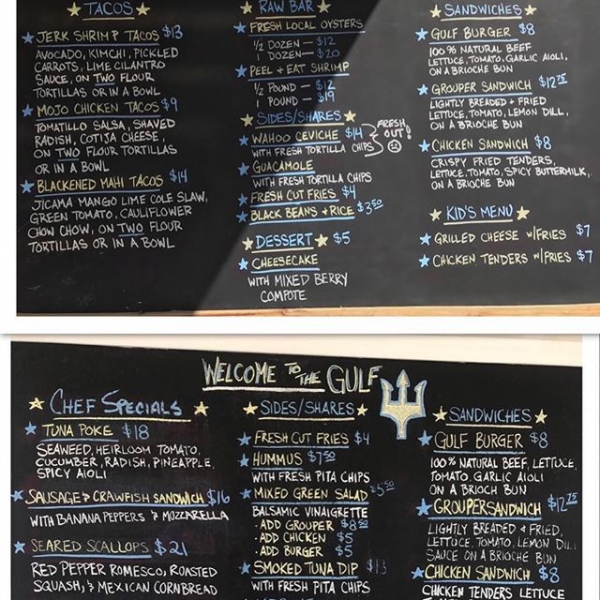 ★ TACOS ★
★ JERK SHRIMP TACOS $13
AVOCADO, KIMCHI, PICKLED
CARROTS, LIME CILANTRO
SAUCE, ON TWO FLOUR
TORTILLAS OR IN A BOWL
★ MOJO CHICKEN TACOS $9
TOMATILLO SALSA, SHAVED
RADISH, COTIJA CHEESE,
ON TWO FLOUR TORTILLAS
OR IN A BOWL
★ BLACKENED MAHI TACOS $14
JICAMA MANGO LIME COLE SLAW,
GREEN TOMATO, CAULIFLOWER
CHOW CHOW, ON TWO FLOUR
TORTILLAS OR IN A BOWL
★ RAW BAR ★
★ FRESH LOCAL OYSTERS
1/2 DOZEN — $12
1 DOZEN — $20
★ PEEL + EAT SHRIMP
1/2 POUND — $12
1 POUND — $19
★ SIDES/SHARES ★
★ WAHOO CEVICHE $14
WITH FRESH TORTILLA CHIPS
FRESH
OUT!
★ GUACAMOLE
WITH FRESH TORTILLA CHIPS
★ FRESH CUT FRIES $4
★ BLACK BEANS + RICE $3.50
★ DESSERT ★ $5
★ CHEESECAKE
WITH MIXED BERRY
COMPOTE
★ SANDWICHES ★
★ GULF BURGER $8
100% NATURAL BEEF
LETTUCE, TOMATO, GARLIC AIOLI,
ON A BRIOCHE BUN
★ GROUPER SANDWICH $12.75
LIGHTLY BREADED + FRIED
LETTUCE, TOMATO, LEMON DILL,
ON A BRIOCHE BUN
★ CHICKEN SANDWICH $8
CRISPY FRIED TENDERS,
LETTUCE, TOMATO, SPICY BUTTERMILK,
ON A BRIOCHE BUN
★ KID'S MENU ★
★ GRILLED CHEESE W/FRIES $7
★ CHICKEN TENDERS W/FRIES $7
WELCOME TO THE GULF
★ CHEF SPECIALS ★
★ TUNA POKE $18
SEAWEED, HEIRLOOM TOMATO,
CUCUMBER, RADISH, PINEAPPLE,
SPICY AIOLI
★ SAUSAGE & CRAWFISH SANDWICH $16
WITH BANANA PEPPERS & MOZZARELLA
★ SEARED SCALLOPS $21
RED PEPPER ROMESCO, ROASTED
SQUASH, & MEXICAN CORNBREAD
★ SIDES/SHARES ★
★ FRESH CUT FRIES $4
★ HUMMUS $7.50
WITH FRESH PITA CHIPS
★ MIXED GREEN SALAD $5.50
BALSAMIC VINAIGRETTE
· ADD GROUPER $8.50
· ADD CHICKEN $5
· ADD BURGER $5
★ SMOKED TUNA DIP $13
WITH FRESH PITA CHIPS
★ SANDWICHES ★
★ GULF BURGER $8
100% NATURAL BEEF, LETTUCE,
TOMATO, GARLIC AIOLI
ON A BRIOCH BUN
★ GROUPER SANDWICH $12.75
LIGHTLY BREADED + FRIED,
LETTUCE, TOMATO, LEMON DILL
SAUCE ON A BRIOCHE BUN
★ CHICKEN SANDWICH $8
CHICKEN TENDERS, LETTUCE